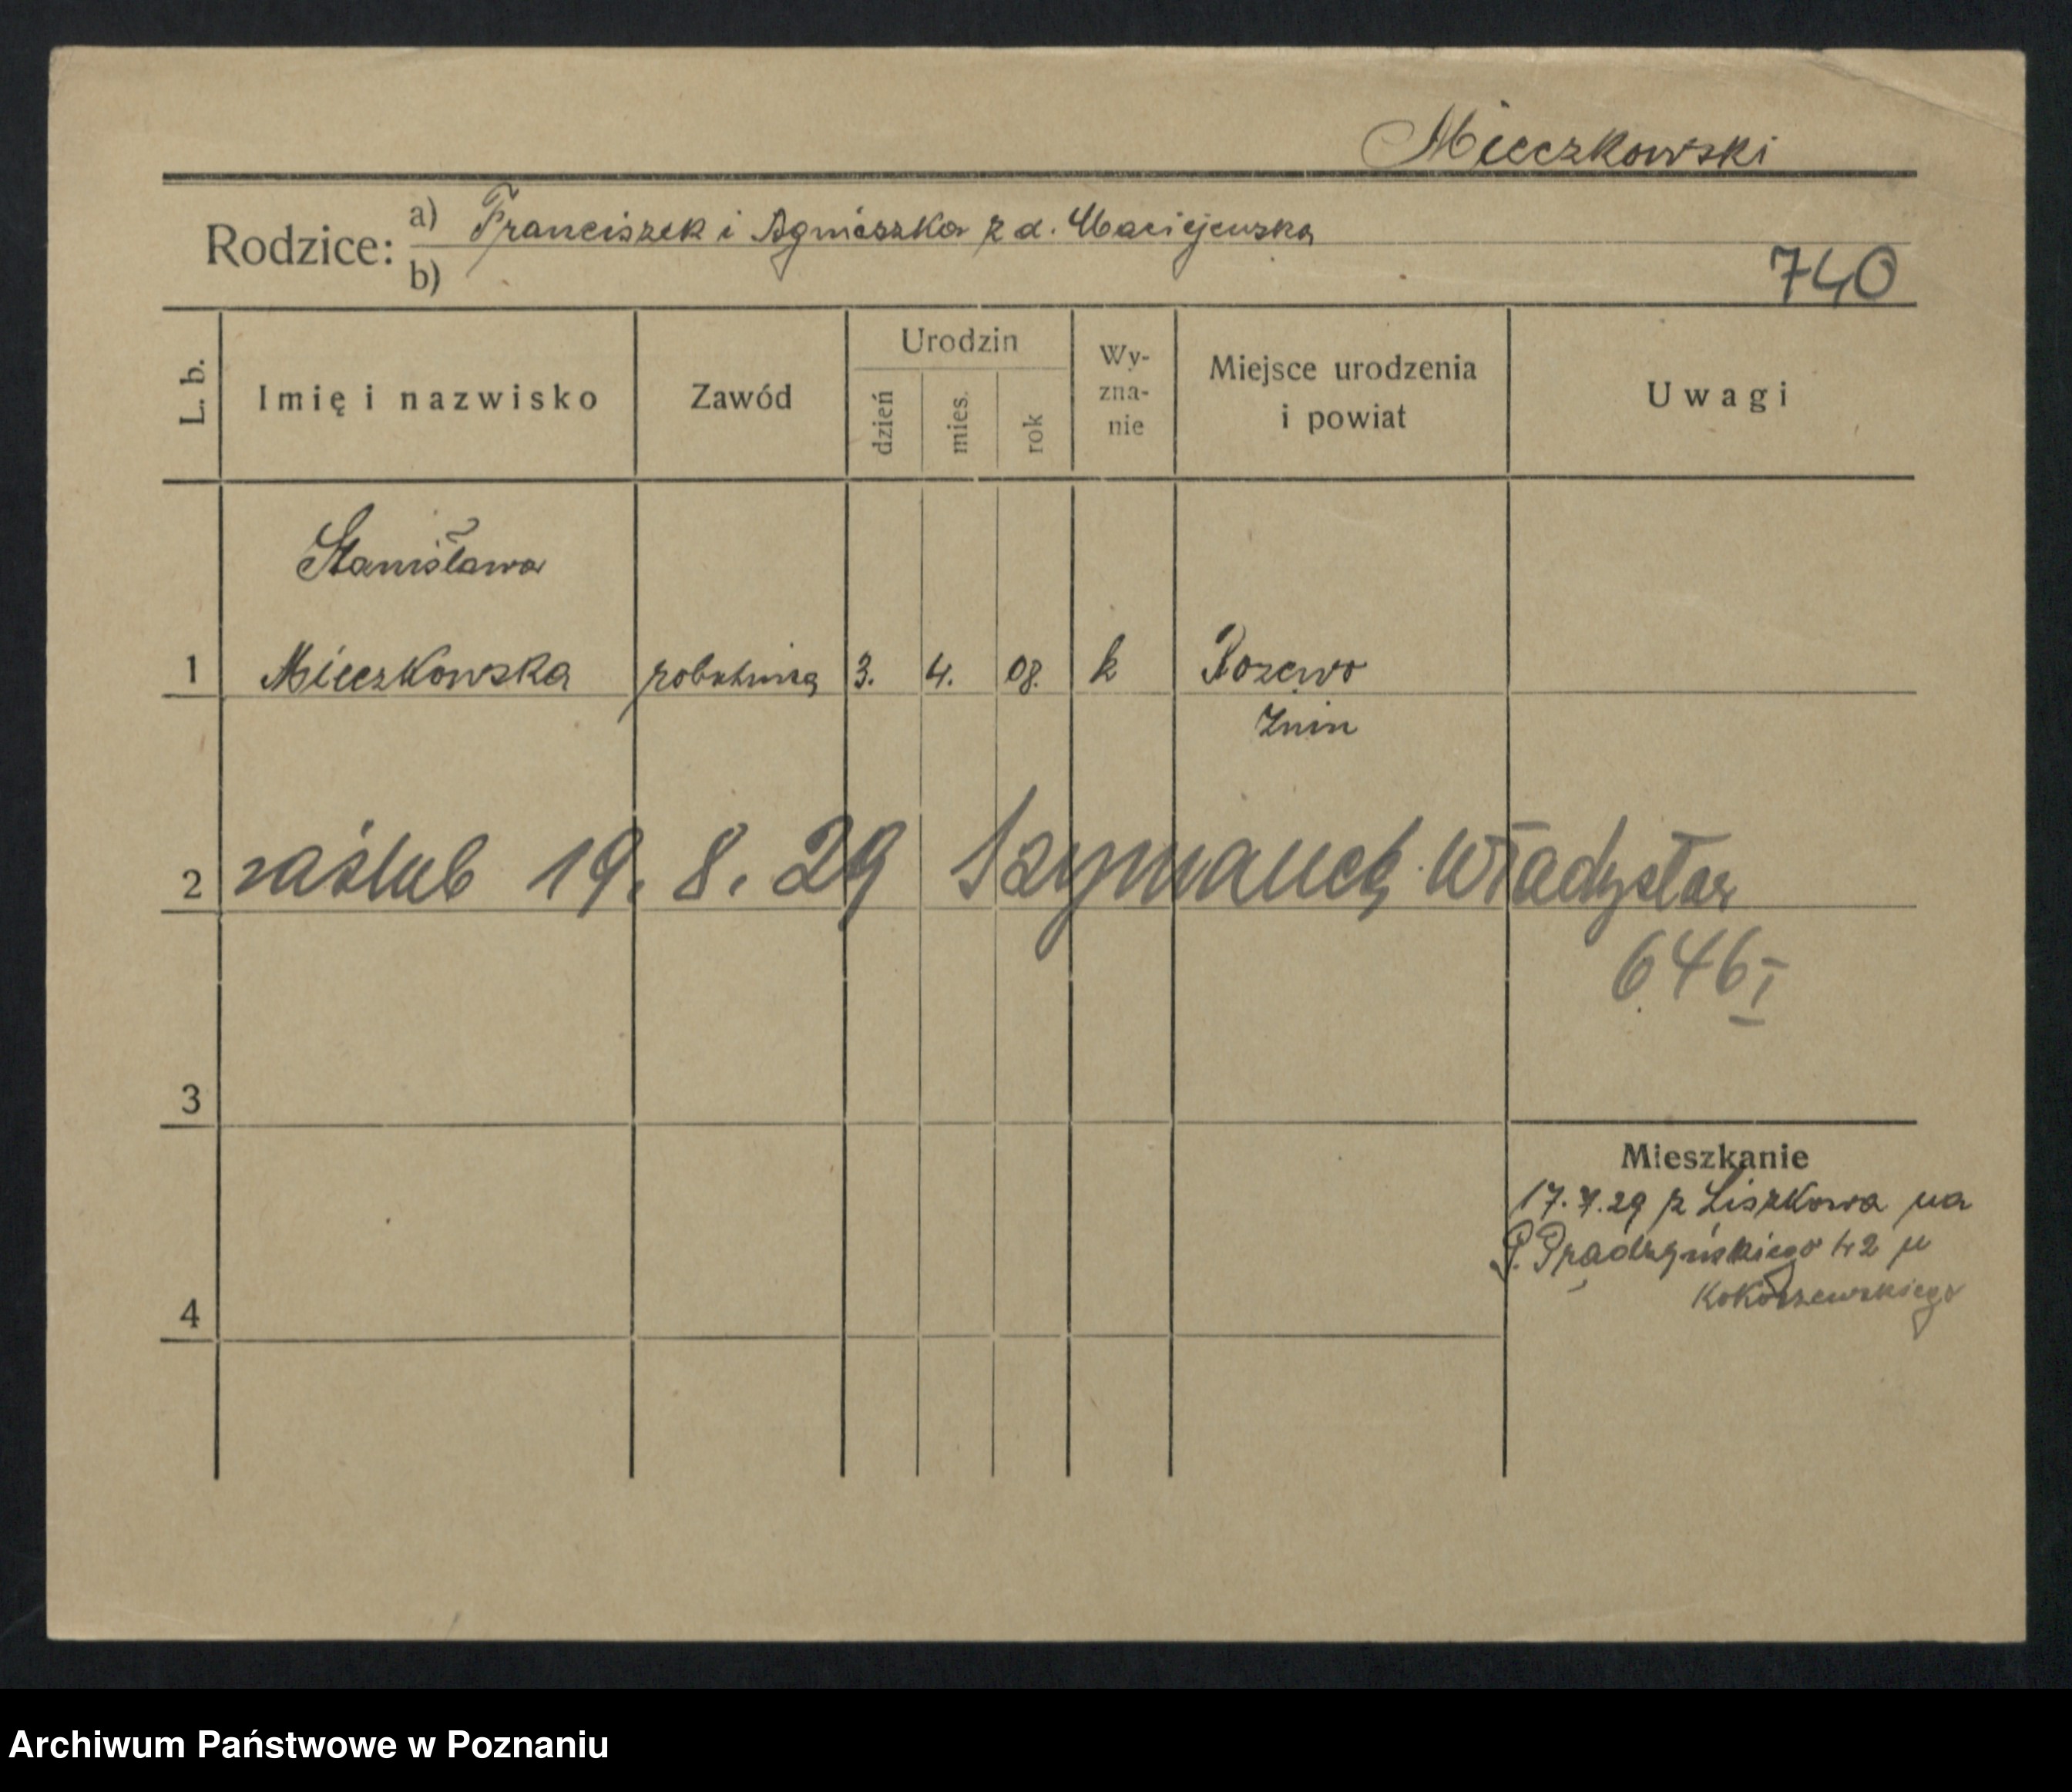 Mieczkowski
Rodzice: a) Franciszek i Agnieszka z d. Maciejewska
b)
740
L. b.
Imię i nazwisko
Zawód
Urodzin
dzień
mies.
rok
Wy-
zna-
nie
Miejsce urodzenia
i powiat
Uwagi
Stanisława
1 Mieczkowska robotnica 3. 4. 08. k
Żnin
2 zaślub 19. 8. 29 Władysław
646 I
3
Mieszkanie
17.7.29 z Liszkowa na
P. Prądzyńskiego 42 u
4
Archiwum Państwowe w Poznaniu